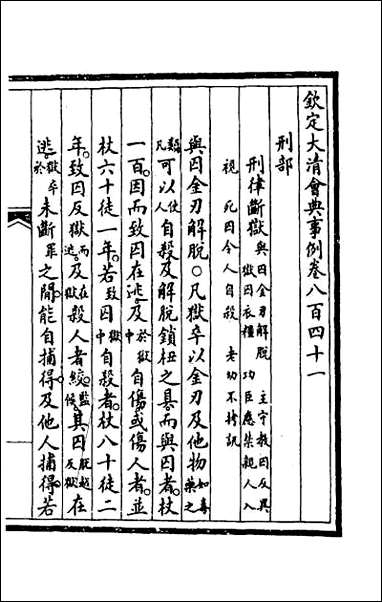 欽定大清會典事例卷八百四十一
刑部
刑律斷獄 與囚金刃解脫 主守教囚反異
獄囚衣糧 功臣應禁親人入
視 死囚令人自殺 老幼不拷訊
與囚金刃解脫○凡獄卒以金刃及他物如毒藥之
類凡可以使人自殺及解脫鎖杻之具而與囚者杖
一百因而致囚在逃及於獄中自傷或傷人者並
杖六十徒一年若致囚獄中自殺者杖八十徒二
年致囚反獄而逃及在獄殺人者絞監候其囚脫越反獄在
逃獄卒於未斷罪之間能自捕得及他人捕得若